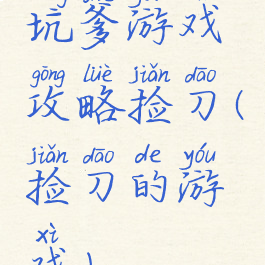 坑爹游戏
gōng lüè jiǎn dāo
攻略捡刀(
jiǎn dāo de yóu
捡刀的游
xì
戏)